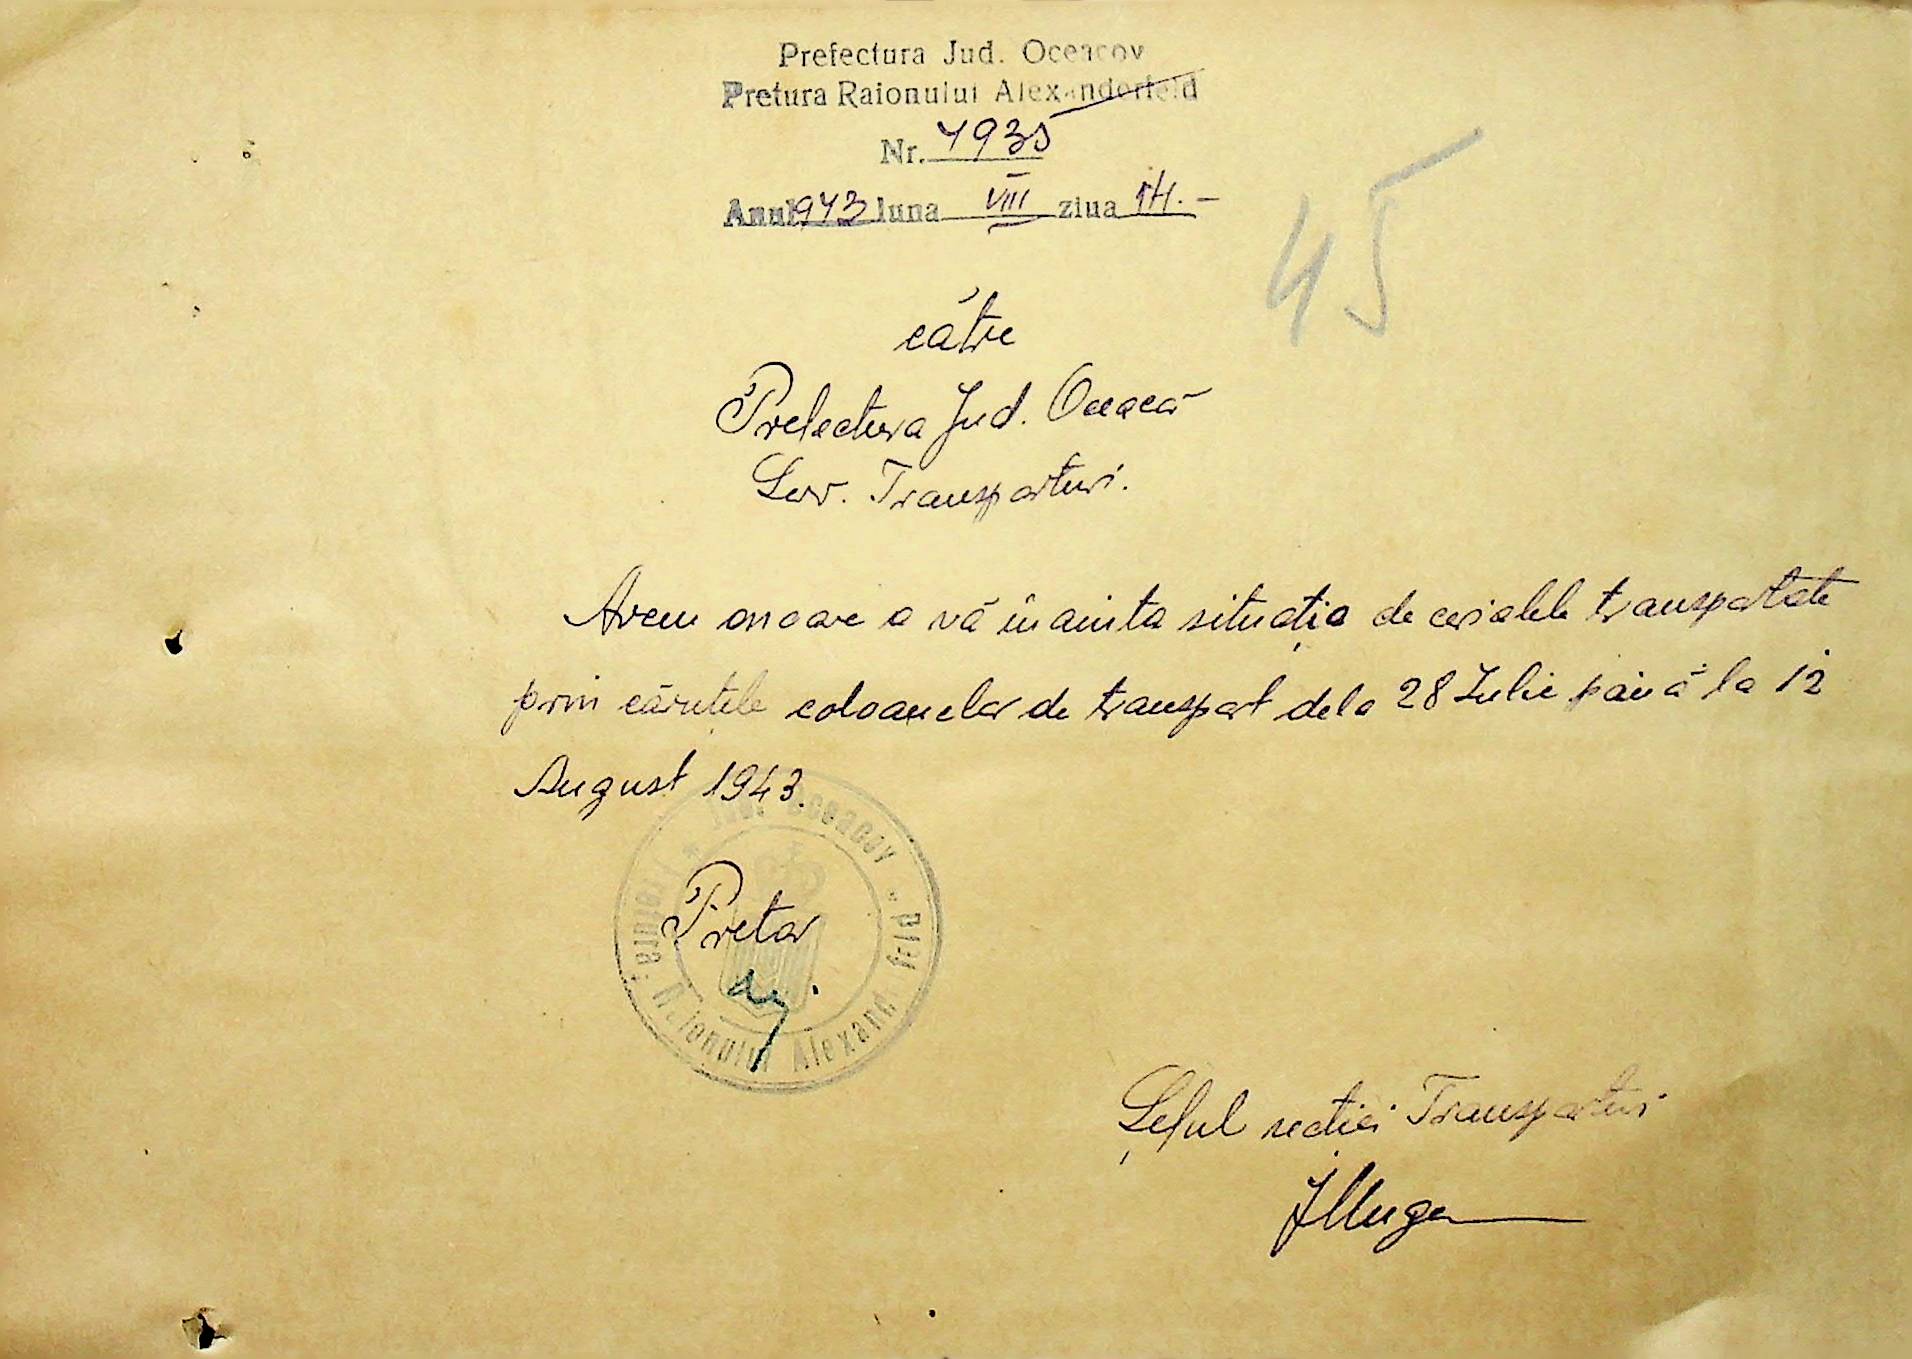 Prefectura Jud. Oceacov
Pretura Raionului Alexanderfeld
Nr. 4935
Anul 1943 luna VIII ziua 14. –
45
către
Prefectura Jud. Oceacov
Serv. Transporturi.
Avem onoare a vă înainta situația de cerialele transportate
prin căruțele coloanelor de transport dela 28 Iulie până la 12
August 1943.
Jud. Oceacov
Pretura Raionului Alexand feld
Pretor
Șeful secției Transporturi